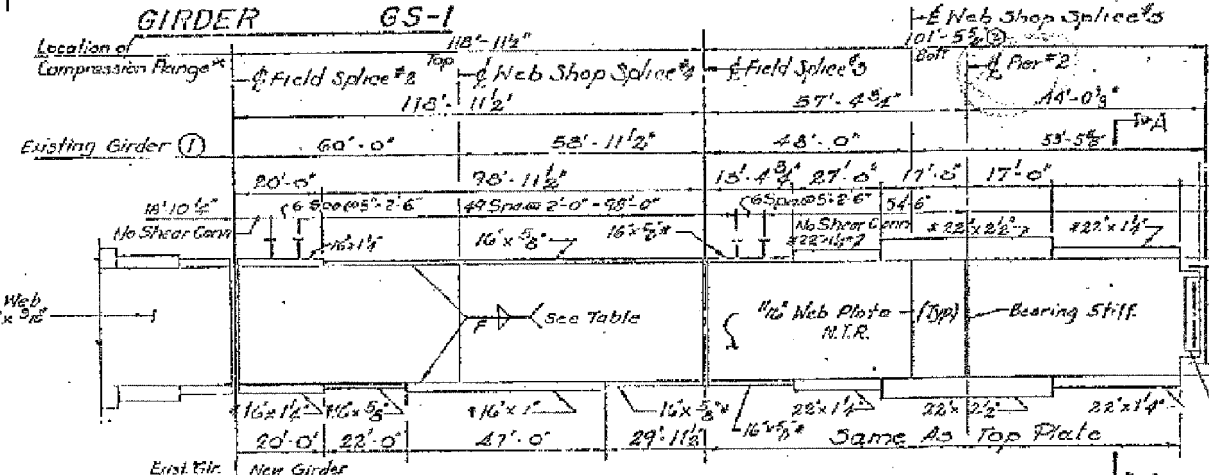 GIRDER GS-1
℄ Web Shop Splice #5
Location of Compression Flange*
118'-11½"
101'-5⅝" ②
Top
Bolt
℄ Field Splice #2
℄ Web Shop Splice #4
℄ Field Splice #3
℄ Pier #2
118'-11½"
57'-4¾"
44'-0⅞"
Existing Girder ①
60'-0"
58'-11½"
48'-0"
53'-5⅝"
A
20'-0"
98'-11½"
13'-4¾"
27'-0"
17'-0"
17'-0"
18'10½"
6 Spa @ 5"=2'-6"
49 Spa @ 2'-0"=98'-0"
6 Spa @ 5"=2'-6"
54'6"
No Shear Conn
16"x1¼"
16"x⅝"
16"x⅝"*
No Shear Conn
*22"x1½"
*22"x2½"
*22"x1¼"
Web
See Table
11/16" Web Plate
N.T.R.
(Typ)
Bearing Stiff.
F
*16"x1¼"
*16"x⅝"
*16"x1"
16"x⅝"*
16"x⅝"*
22"x1¼"
22"x2½"
22"x1¼"
20'-0"
22'-0"
47'-0"
29'-11½"
Same As Top Plate
Exist. Gir.
New Girder